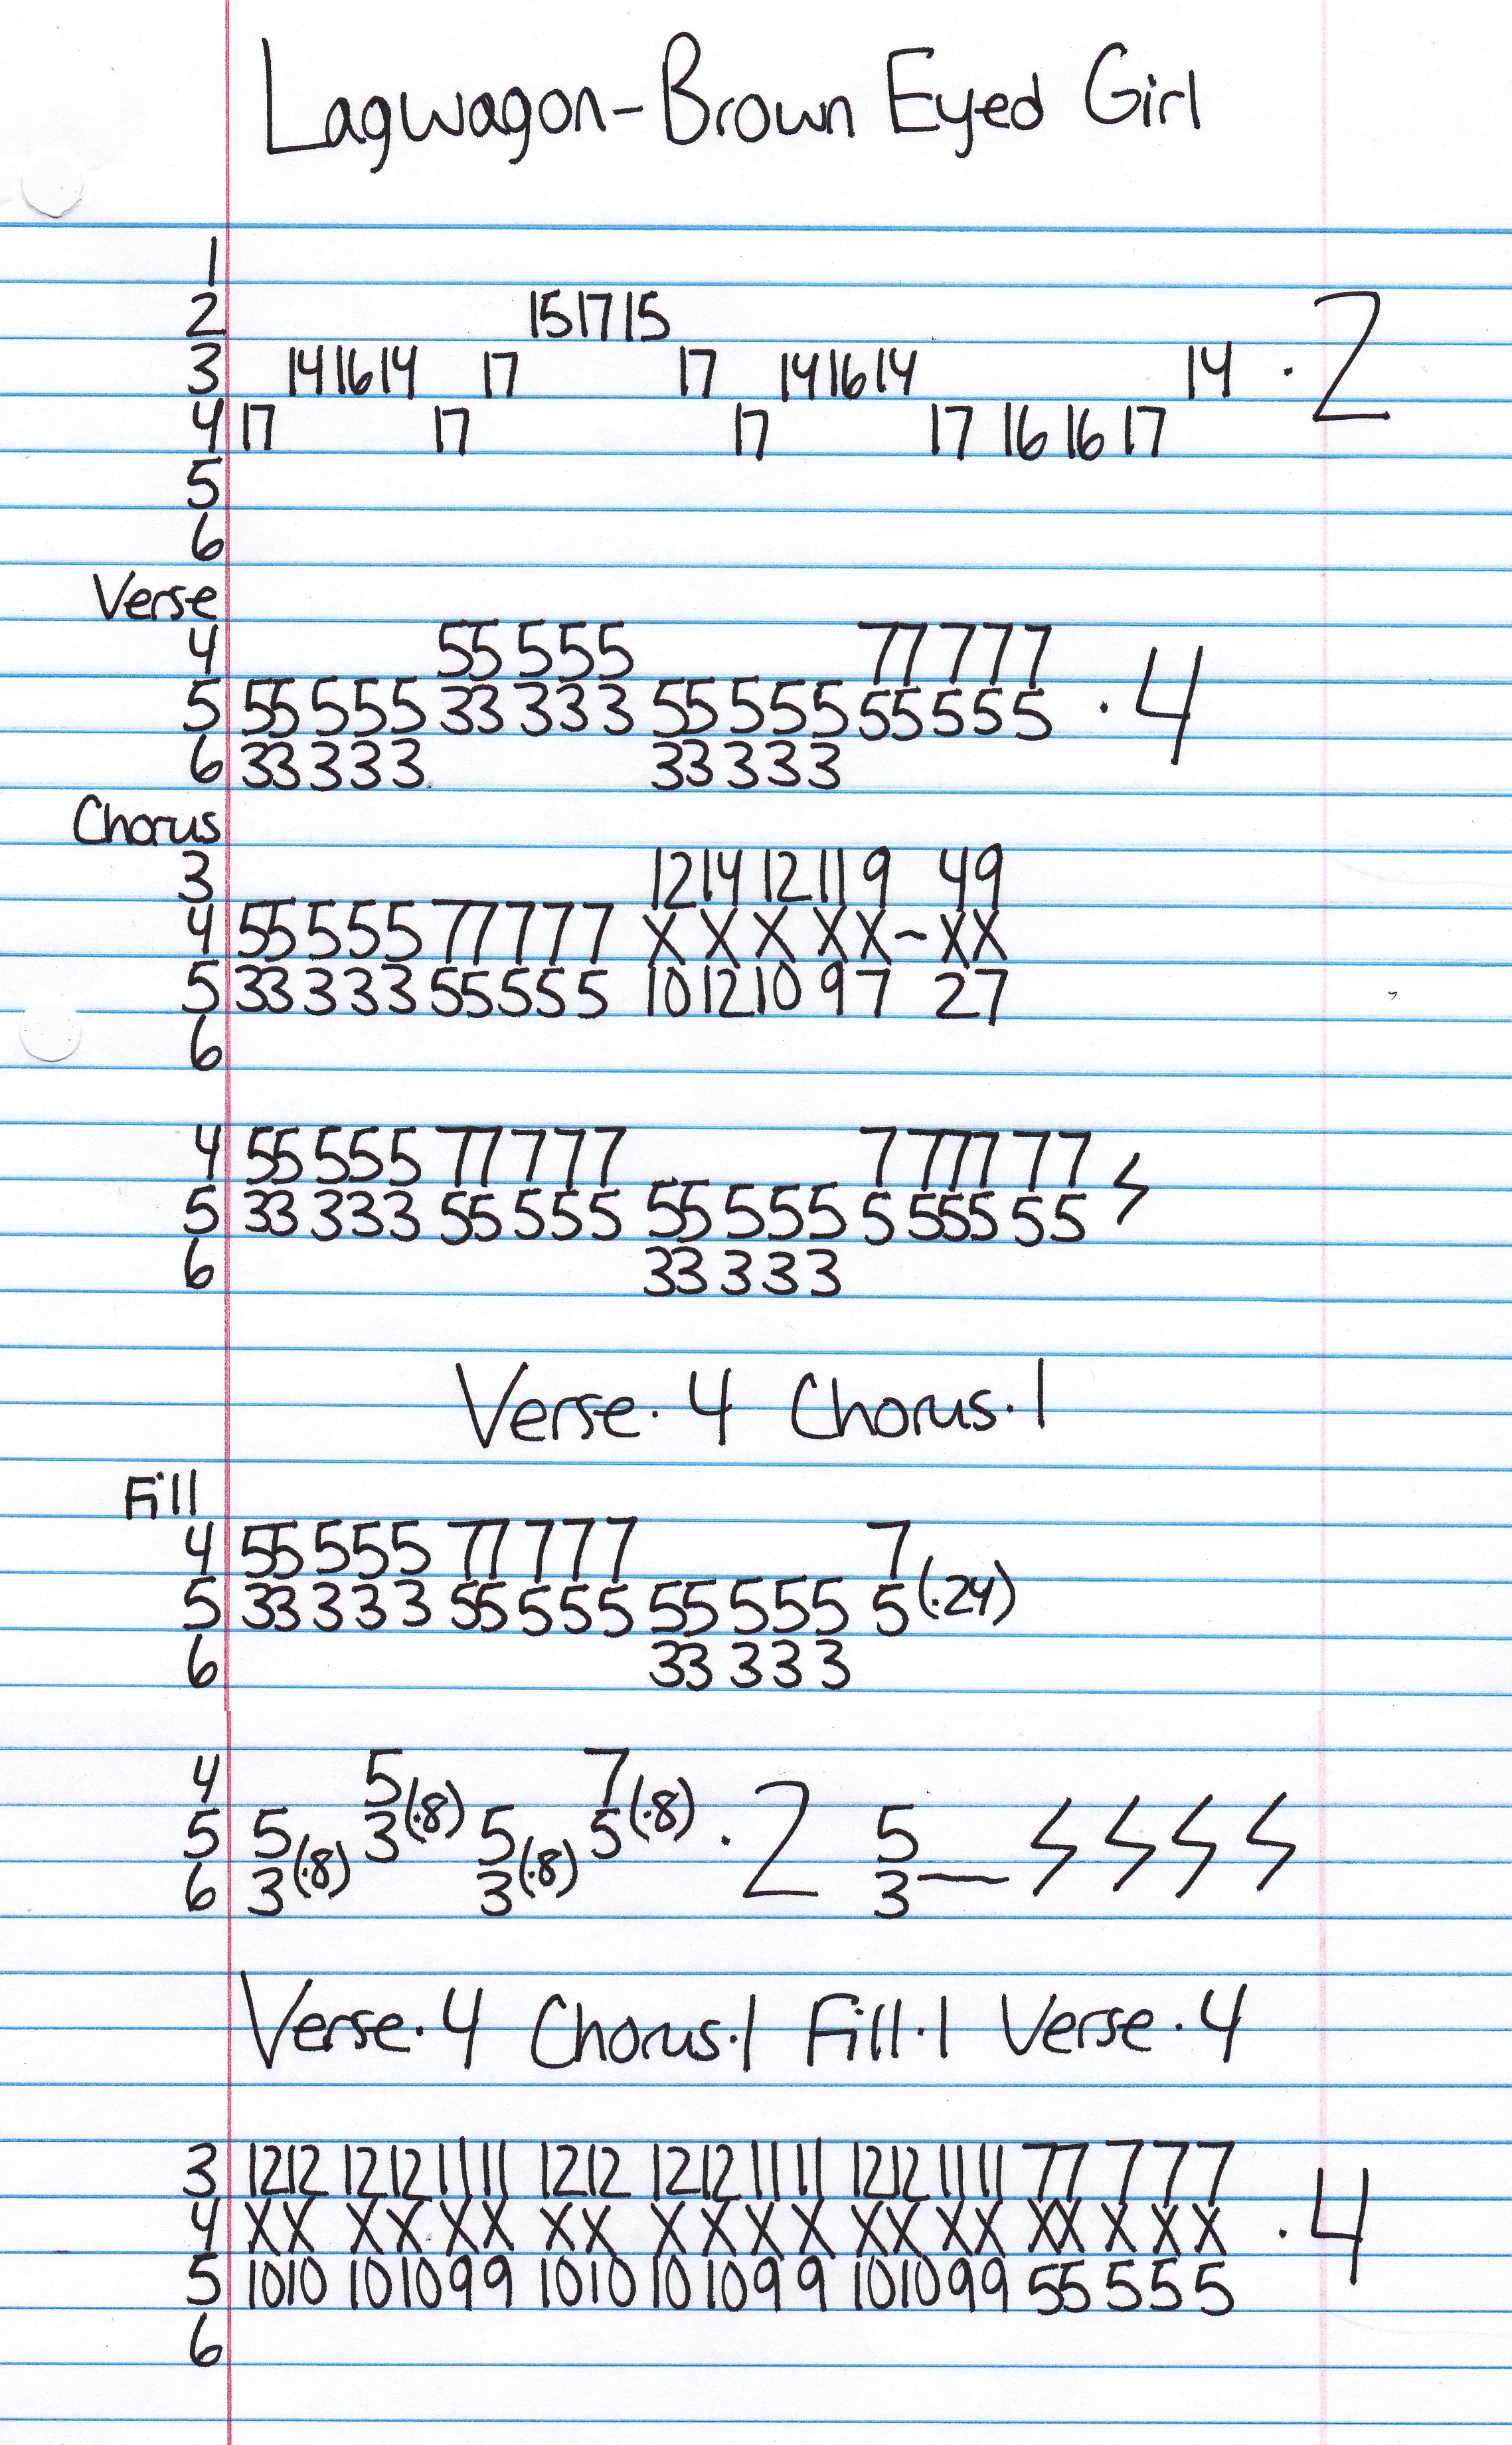 Lagwagon-Brown Eyed Girl
1
2 15 17 15
3 14 16 14 17 17 14 16 14 14 · 2
4 17 17 17 17 16 16 17
5
6
Verse
4 55 555 77 777
5 55 555 33 333 55 555 55 555 · 4
6 33 333 33 333
Chorus
3 12 14 12 11 9 4 9
4 55 555 77 777 X X X X X ~ X X
5 33 333 55 555 10 12 10 9 7 2 7
6
4 55 555 77 777 7 777 77
5 33 333 55 555 55 555 5 555 55
6 33 333
Verse·4 Chorus·1
Fill
4 55 555 77 777 7
5 33 333 55 555 55 555 5 (·24)
6 33 333
4 5 7
5 5 3(·8) 5 5(·8) · 2 5
6 3(·8) 3(·8) 3
Verse·4 Chorus·1 Fill·1 Verse·4
3 12 12 12 12 11 11 12 12 12 12 11 11 12 12 11 11 77 777
4 X X X X X X X X X X X X X X X X XX X X X · 4
5 10 10 10 10 9 9 10 10 10 10 9 9 10 10 9 9 55 555
6